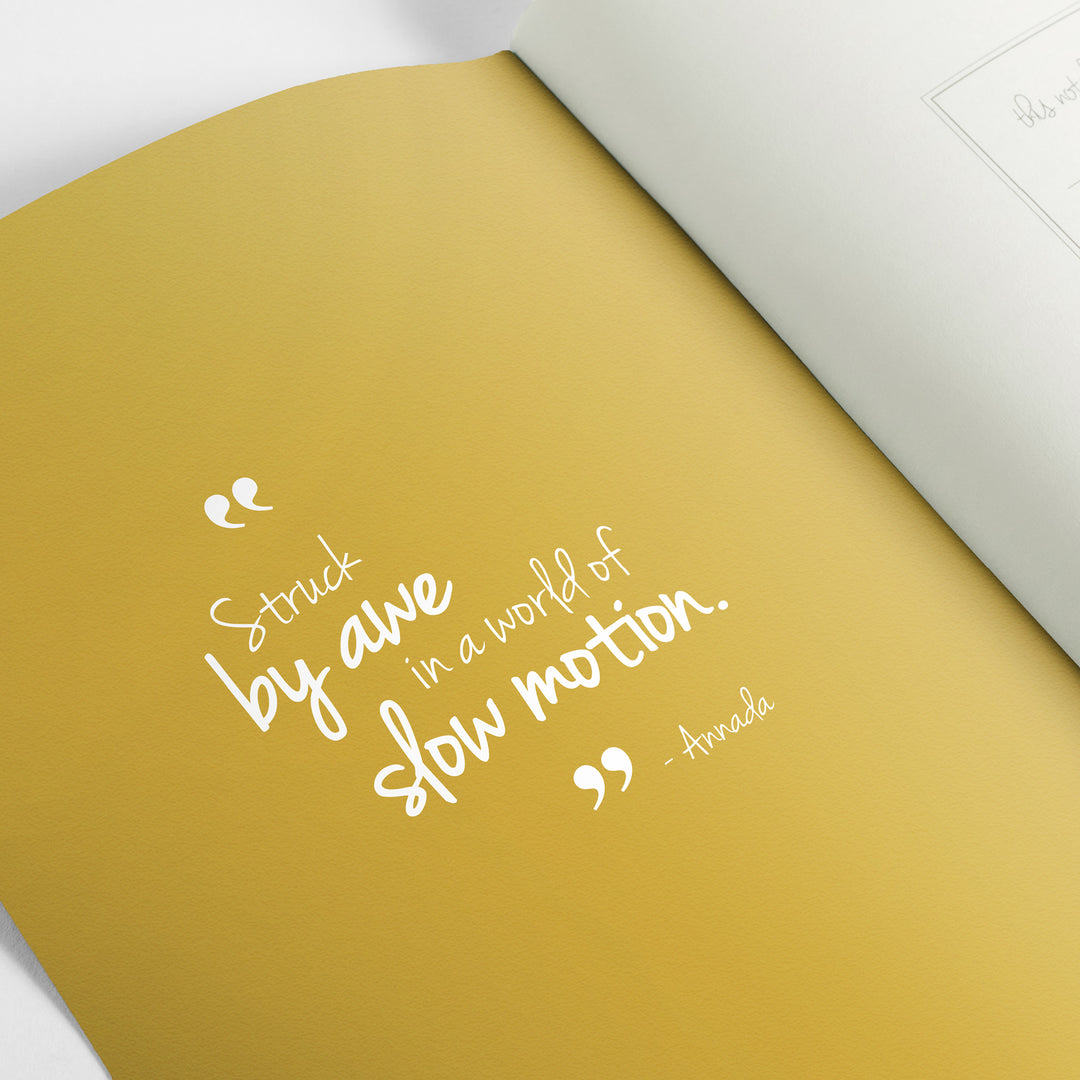 “
Struck
by awe
in a world of
slow motion.
”
- Annada
this